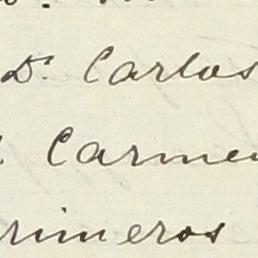 Dr. Carlos
Carmen
rimeros